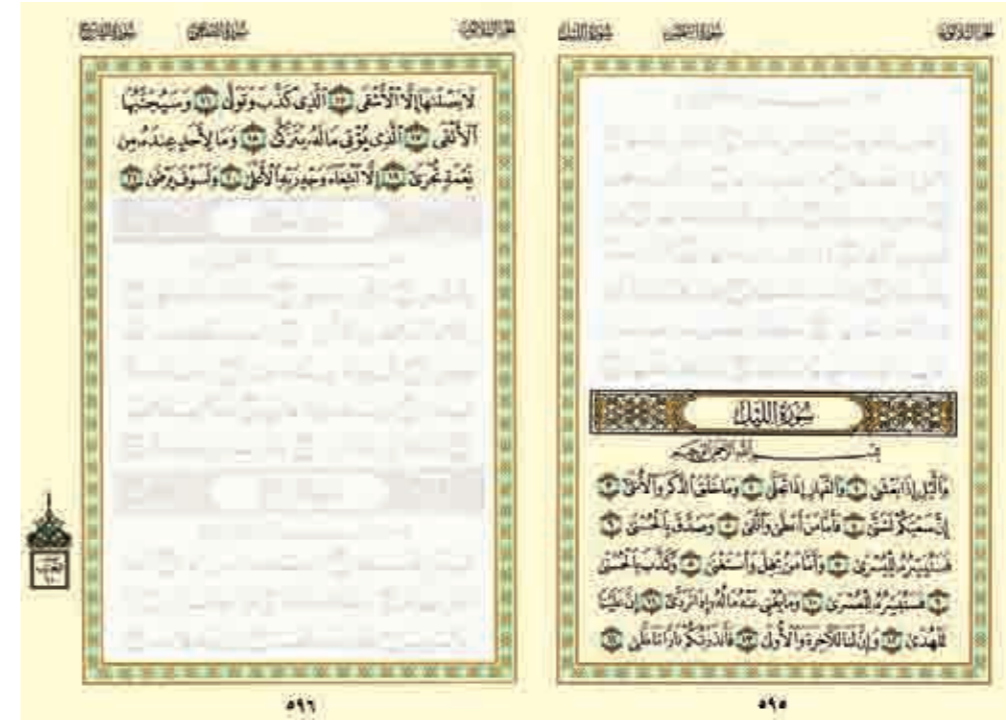 الجزء الثلاثون
سورة الشمس
سورة الليل
سُورَةُ اللَّيْلِ
بِسْمِ اللَّهِ الرَّحْمَٰنِ الرَّحِيمِ
وَٱلَّيْلِ إِذَا يَغْشَىٰ ١ وَٱلنَّهَارِ إِذَا تَجَلَّىٰ ٢ وَمَا خَلَقَ ٱلذَّكَرَ وَٱلْأُنثَىٰٓ ٣
إِنَّ سَعْيَكُمْ لَشَتَّىٰ ٤ فَأَمَّا مَنْ أَعْطَىٰ وَٱتَّقَىٰ ٥ وَصَدَّقَ بِٱلْحُسْنَىٰ ٦
فَسَنُيَسِّرُهُۥ لِلْيُسْرَىٰ ٧ وَأَمَّا مَنۢ بَخِلَ وَٱسْتَغْنَىٰ ٨ وَكَذَّبَ بِٱلْحُسْنَىٰ
٩ فَسَنُيَسِّرُهُۥ لِلْعُسْرَىٰ ١٠ وَمَا يُغْنِى عَنْهُ مَالُهُۥٓ إِذَا تَرَدَّىٰٓ ١١ إِنَّ عَلَيْنَا
لَلْهُدَىٰ ١٢ وَإِنَّ لَنَا لَلْـَٔاخِرَةَ وَٱلْأُولَىٰ ١٣ فَأَنذَرْتُكُمْ نَارًا تَلَظَّىٰ ١٤
٥٩٥
الجزء الثلاثون
سورة الضحى
سورة الشرح
لَا يَصْلَىٰهَآ إِلَّا ٱلْأَشْقَى ١٥ ٱلَّذِى كَذَّبَ وَتَوَلَّىٰ ١٦ وَسَيُجَنَّبُهَا
ٱلْأَتْقَى ١٧ ٱلَّذِى يُؤْتِى مَالَهُۥ يَتَزَكَّىٰ ١٨ وَمَا لِأَحَدٍ عِندَهُۥ مِن
نِّعْمَةٍ تُجْزَىٰٓ ١٩ إِلَّا ٱبْتِغَآءَ وَجْهِ رَبِّهِ ٱلْأَعْلَىٰ ٢٠ وَلَسَوْفَ يَرْضَىٰ ٢١
٥٩٦